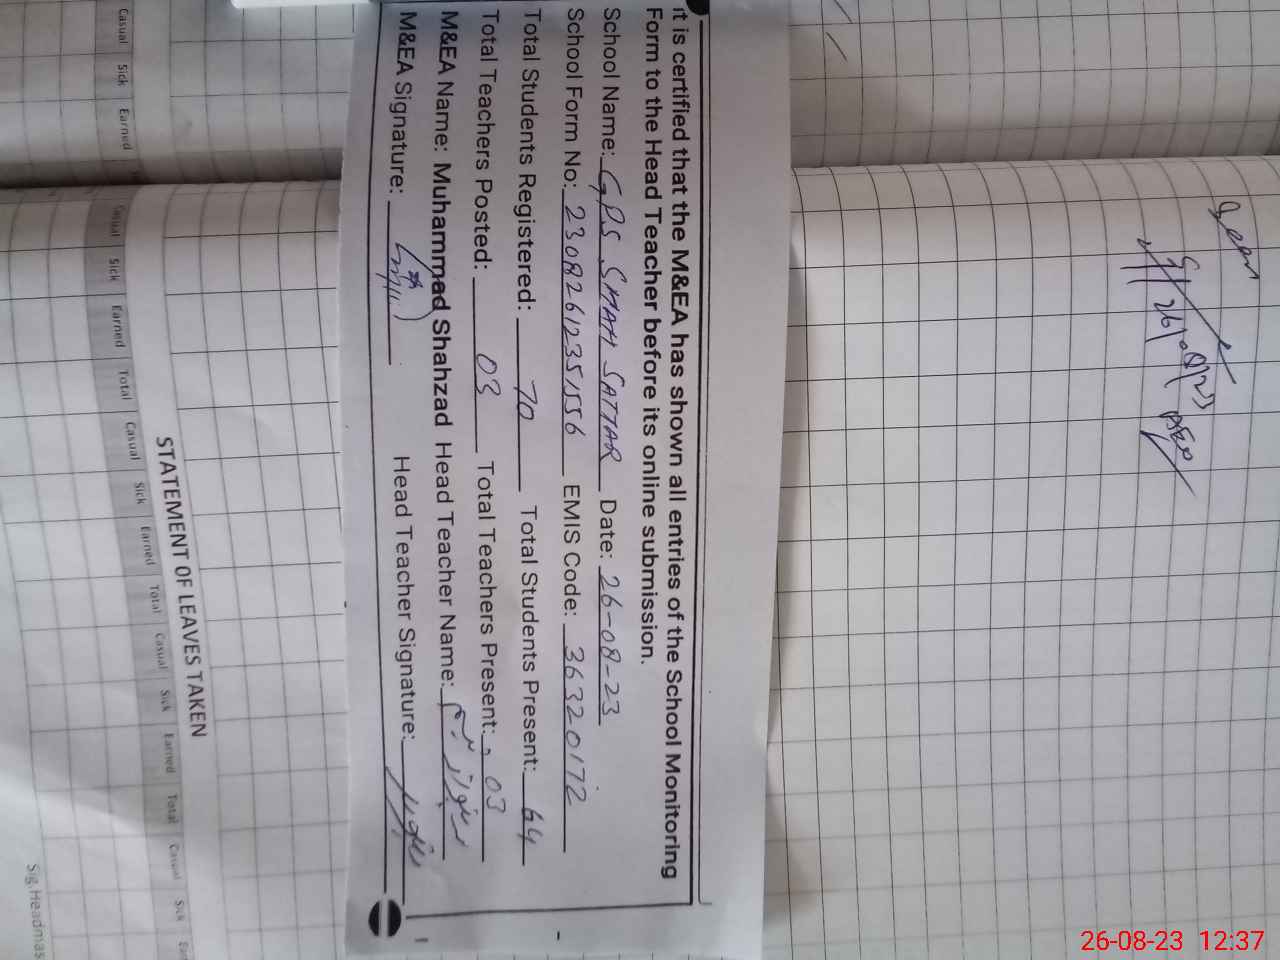 It is certified that the M&EA has shown all entries of the School Monitoring
Form to the Head Teacher before its online submission.
School Name: GPS SHAH SATTAR Date: 26-08-23
School Form No: 23082612351556 EMIS Code: 36320172
Total Students Registered: 70 Total Students Present: 64
Total Teachers Posted: 03 Total Teachers Present: 03
M&EA Name: Muhammad Shahzad Head Teacher Name:
M&EA Signature: Head Teacher Signature:
Seen
STATEMENT OF LEAVES TAKEN
Casual Sick Earned
Casual Sick Earned Total Casual Sick Earned Total Casual Sick Earned Total Casual Sick
Sig.Headmas
26-08-23 12:37